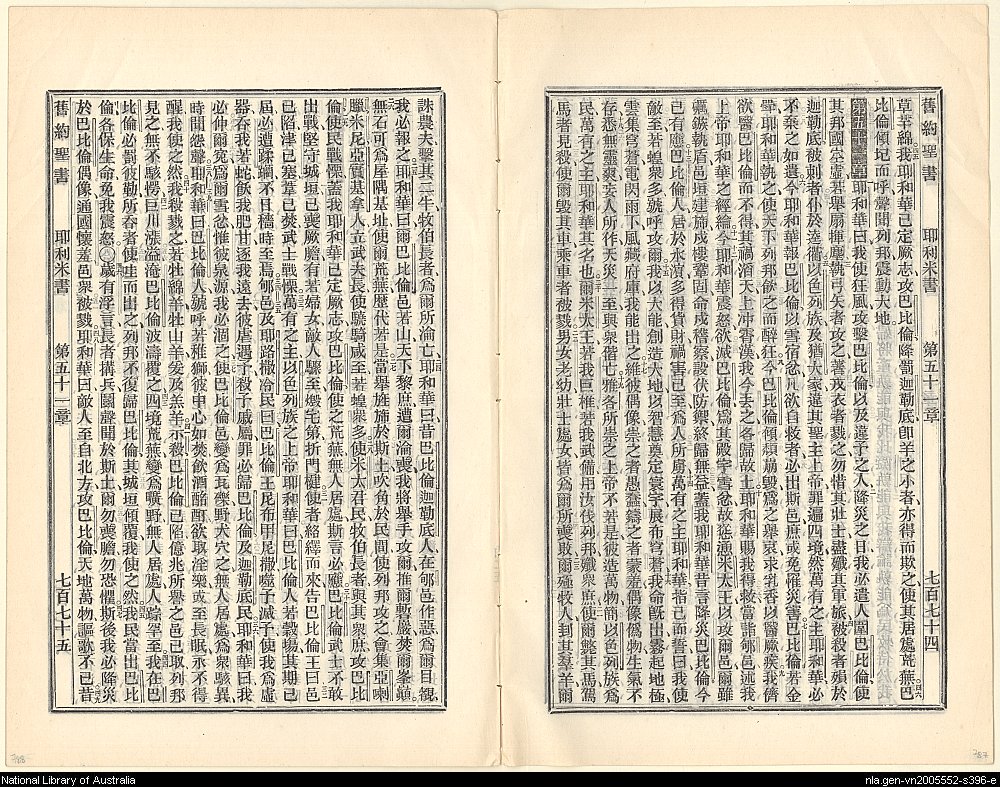 舊約聖書 耶利米書 第五十一章 七百七十四
草芊綿我耶和華已定厥志攻巴比倫降罰迦勒底卽羊之小者亦得而欺之使其居處荒蕪巴
比倫傾圮而呼聲聞列邦震動大地
耶和華曰我使狂風攻擊巴比倫以及違予之人降災之日我必遣人圍巴比倫使
其邦國空虛若舉扇揮塵執弓矢者攻之著戎衣者戮之勿惜其壯士盡殲其軍旅被殺者殞於
迦勒底被刺者仆於逵衢以色列族及猶大家違其聖主上帝罪遍四境然萬有之主耶和華必
不棄之如遺今耶和華報巴比倫以雪宿忿凡欲自救者必出斯邑庶或免罹災害巴比倫若金
斝耶和華執之使天下列邦飲之而醉狂今巴比倫傾頹崩毀爲之舉哀求乳香以醫厥疾我儕
欲醫巴比倫而不得其禍滔天上沖霄漢我今去之各歸故土耶和華賜我得救當詣郇邑述我
上帝耶和華之經綸今耶和華震怒欲滅巴比倫爲其殿宇雪忿故慫慂米太王爾
礪鏃執盾邑垣建旆戍樓鞏固命戍稽察設伏防禦終歸無益蓋我耶和華昔言降災巴比倫今
已有應巴比倫人居於水濱多得貨財禍害已至爲人所虜萬有之主耶和華指己而誓曰我使
敵至若蝗衆多號呼攻爾我以大能創造大地以智慧奠定寰宇展布穹蒼我命旣出起地極
雲集穹蒼電閃雨下風藏府庫我能出之維彼偶像崇之者愚蠢鑄之者蒙羞偶像僞物生氣不
存悉無靈爽安人所作天災一至與衆偕亡雅各所崇之上帝不若是彼造萬物簡以色列族爲
民萬有之主耶和華其名也爾米太王若我巨椎若我武備用汝伐列邦殲衆庶使爾斃其馬
馬者見殺使爾毀其車乘車者被戮男女老幼壯士處女皆爲爾所喪敗爾殛牧人刲其羣羊爾
誅農夫擊其二牛牧伯長者爲爾所淪亡耶和華曰昔巴比倫迦勒底人在郇邑作惡爲爾目覩
我必報之耶和華曰爾巴比倫邑若山天下黎庶遭爾淪喪我將舉手攻爾推爾暫巖焚爾峯巔
無石可爲屋隅基址使爾荒蕪歷代若是當舉旌施於斯土吹角於民間使列邦攻之會集亞喇
臘米尼亞實基拿人立武夫長使驕騎咸至若蝗衆多使米太君民牧伯長者與其衆庶攻巴比
倫使民戰慄蓋我耶和華已定厥志攻巴比倫使之荒蕪無人居處斯言必應巴比倫武士不敢
出戰堅守城垣已喪厥膽有若婦女敵人騾至燬宅第折門楗使者絡繹而來告巴比倫王曰邑
已陷津已塞葦已焚武士戰慄萬有之主以色列族之上帝耶和華曰巴比倫人若穀場其期已
屆必遭蹂躪不日穡時至焉郇邑及耶路撒冷民曰巴比倫王尼布甲尼撒噬予滅予使我爲虛
器吞我若蛇飲我肥甘逐我遠去彼虐遇予殺予戚屬罪必歸巴比倫及迦勒底民耶和華曰我
必伸爾冤爲爾雪忿惟彼泉源我必涸之使巴比倫邑變爲瓦礫野犬穴之無人居處爲衆駭異
時聞怨聲耶和華曰巴比倫人號呼若雅獅彼中心如焚飲酒酩酊欲取淫樂或至長眠永不得
醒我使之然我殺戮之若牡綿羊牡山羊爰及羔羊示殺巴比倫已陷億兆所譽之邑已取列邦
見之無不駭愕巨川漲溢淹巴比倫波濤覆之四境荒蕪變爲曠野無人居處人踪罕至我在巴
比倫必罰彼勒所吞者使哇而出之列邦不復歸巴比倫其城垣傾覆我使之然我民當出巴比
倫各保生命免我震怒歲有淫言長者搆兵鬭聲聞於斯土爾勿喪膽勿恐懼斯後我必降災
於巴比倫偶像通國懷羞邑衆被戮耶和華曰敵人至自北方攻巴比倫天地萬物謳歌不已昔
舊約聖書 耶利米書 第五十一章 七百七十五
788
787
National Library of Australia
nla.gen-vn2005552-s396-e